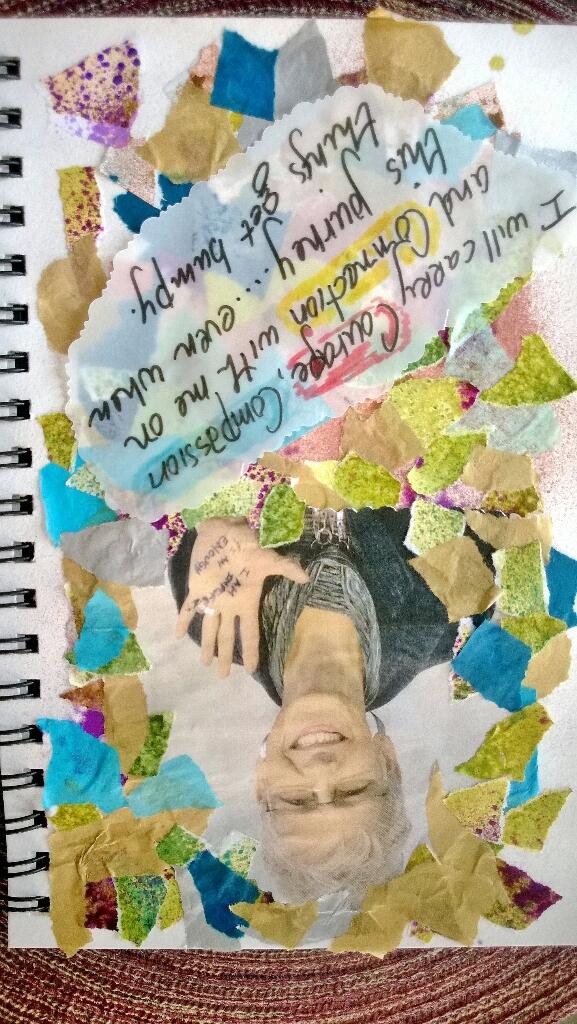 I will carry Courage, Compassion
and Connection with me on
this journey... even when
things get bumpy.
I AM
ENOUGH